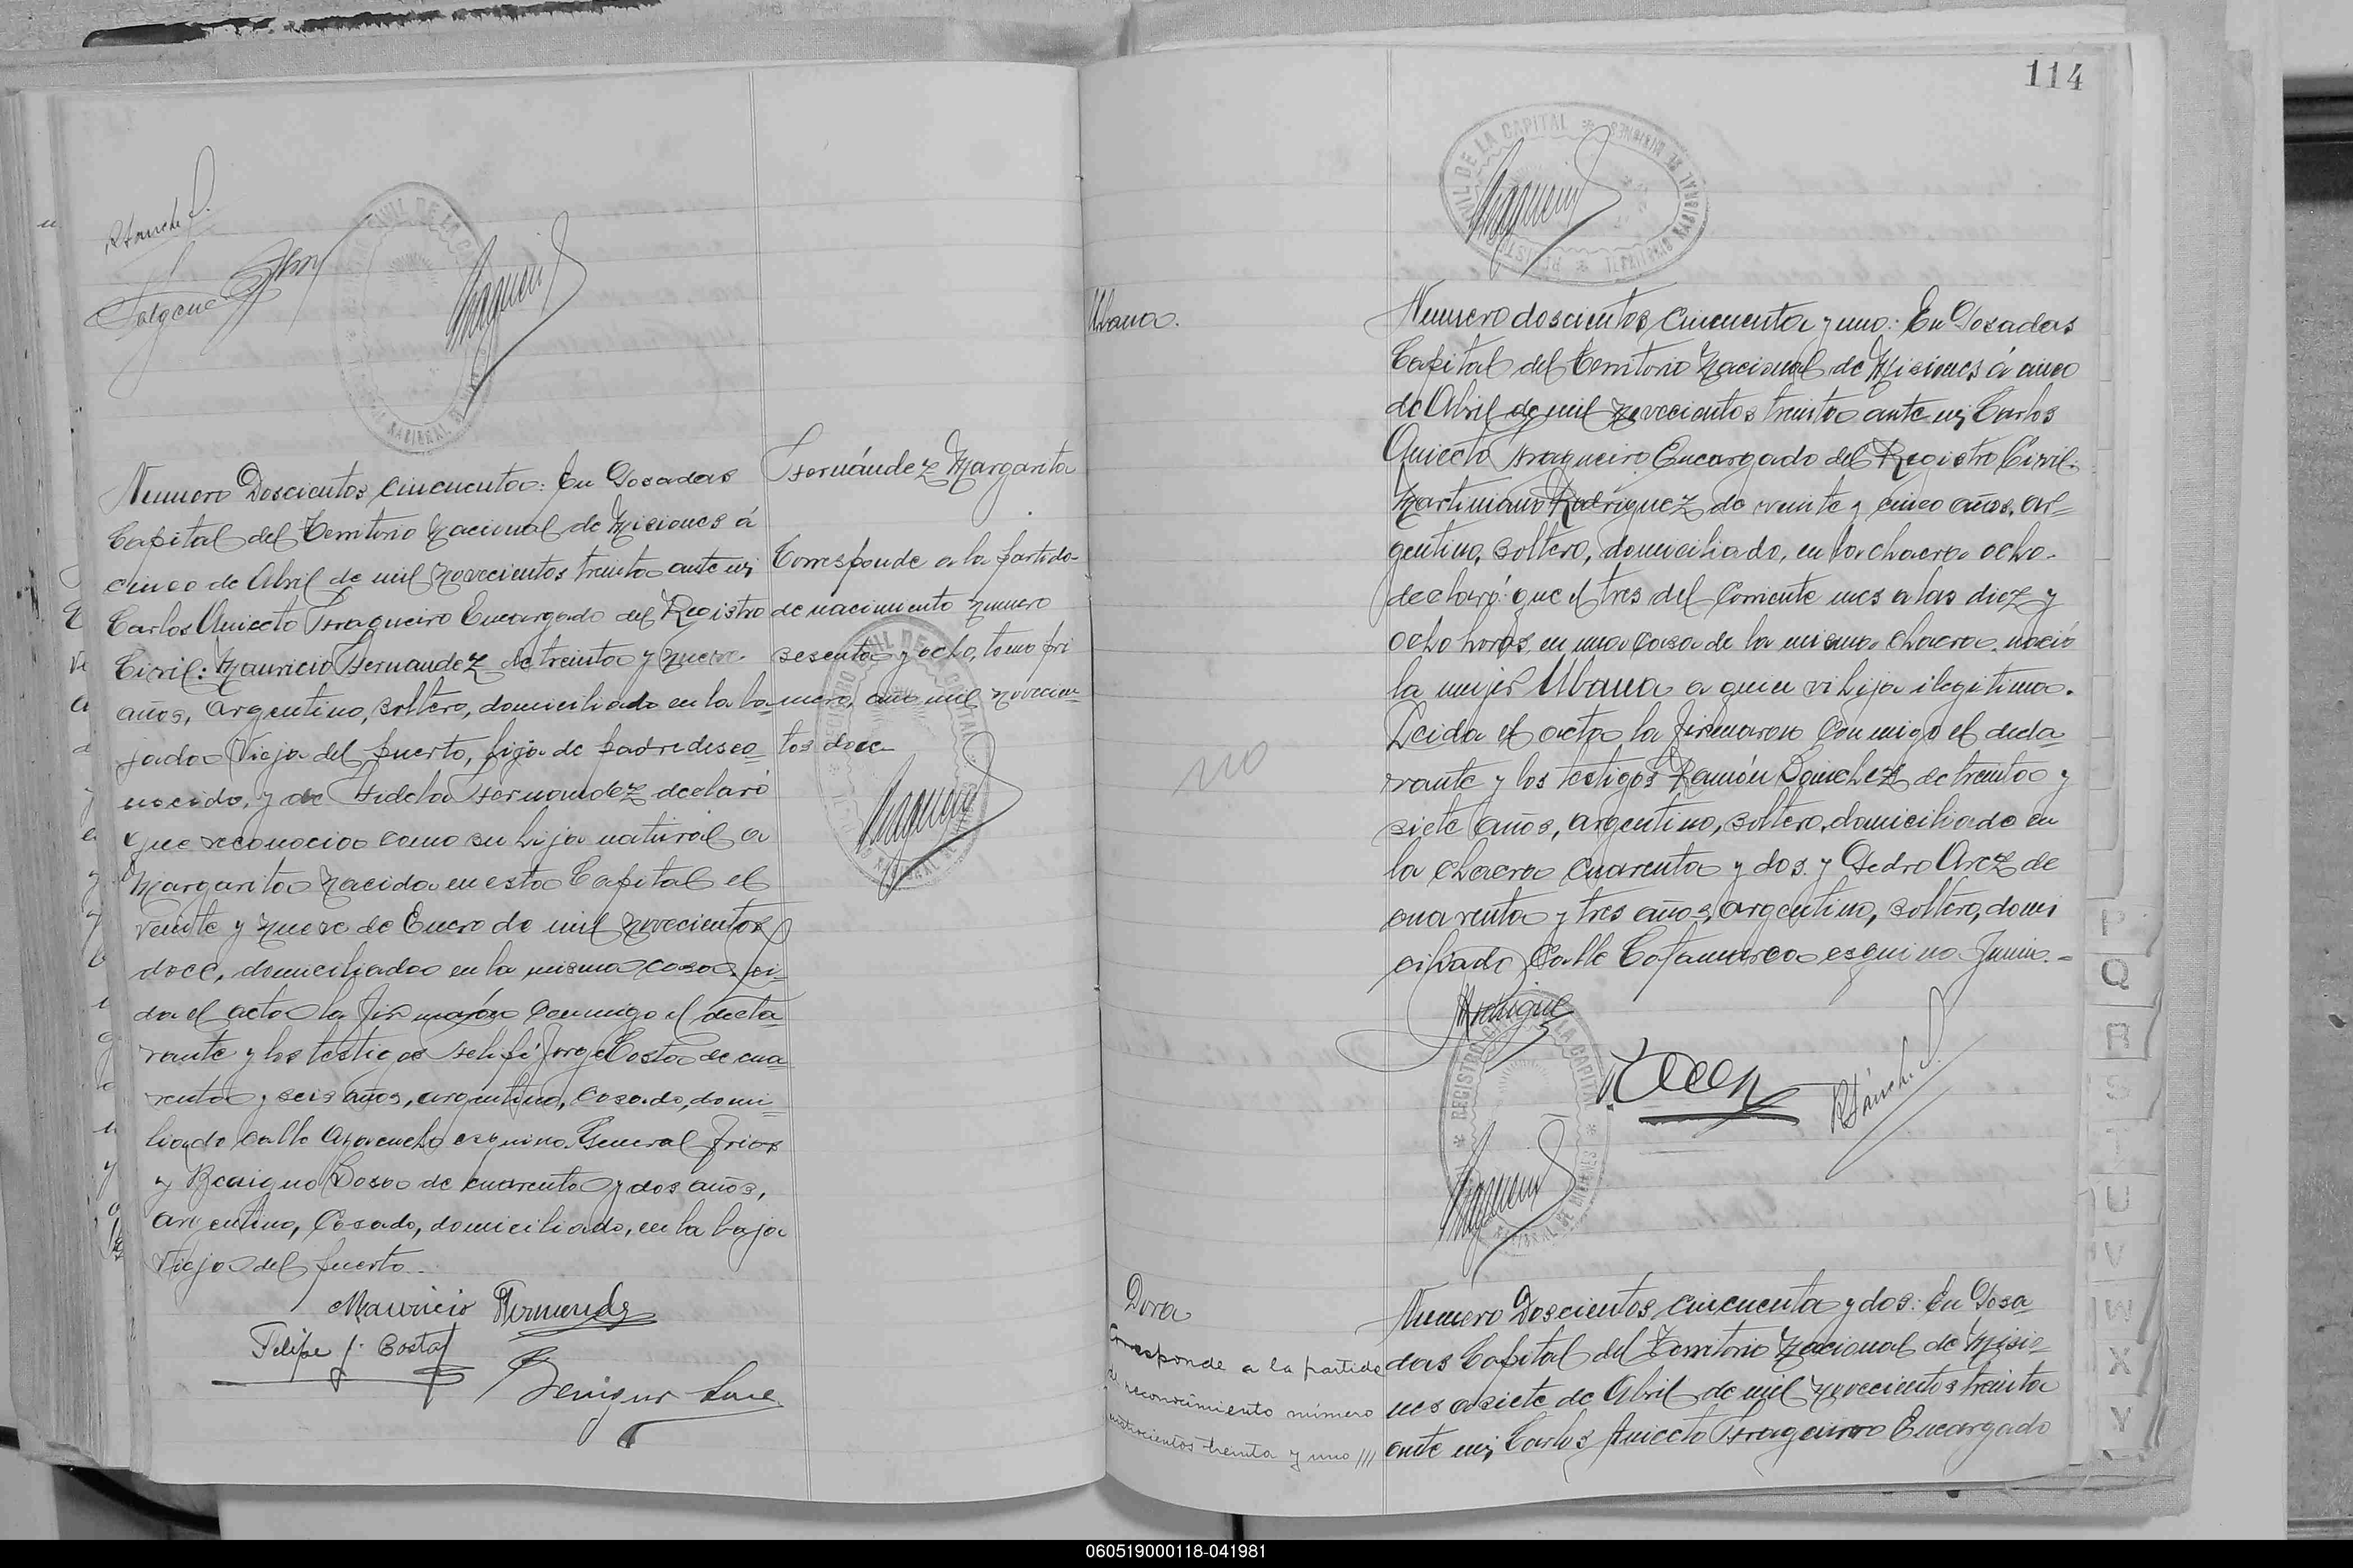 RSanche S.
Numero Doscientos cincuenta: En Posadas
Capital del Territorio Nacional de Misiones á
cinco de Abril de mil novecientos treinta ante mi
Carlos Aniceto Fragueiro Encargado del Registro
Civil: Mauricio Fernandez de treinta y nueve
años, argentino, soltero, domiciliado en la ba-
jada Vieja del puerto, hijo de padre desco-
nocido, y de Fidela Fernandez declaró
que reconocia como su hija natural a
Margarita nacida en esta Capital el
veinte y nueve de Enero de mil novecientos
doce, domiciliada en la misma casa. Lei-
da el acta la firmarón conmigo el decla-
rante y los testigos Felipe Jorge Costa de cua-
renta y seis años, argentino, casado, domi-
liado calle Ayacucho esquina General Frias
y Benigno Sosa de cuarenta y dos años,
argentino, casado, domiciliado, en la baja
Vieja del puerto.
Mauricio Fernandz
Felipe J. Costa
Benigno
Fernández Margarita
Corresponde a la partida
de nacimiento numero
sesenta y ocho, tomo pri
mero, año mil novecien-
tos doce
114
Ubana.
no
Numero doscientos cincuenta y uno: En Posadas
Capital del Territorio Nacional de Misiones á cinco
de Abril de mil novecientos treinta ante mi Carlos
Aniceto Fragueiro Encargado del Registro Civil.
Martiniano Rodríguez de veinte y cinco años, ar-
gentino, soltero, domiciliado, en la chacra ocho.
declaró: que el tres del corriente mes a las diez y
ocho horas, en una casa de la misma chacra. nació
la mujer Ubana a quien vi hija ilegitima.
Leida el acta la firmaron conmigo el decla-
rante y los testigos Ramón Sanchez de treinta y
siete años, argentino, soltero, domiciliado en
la chacra cuarenta y dos. y Pedro Arez de
cuarenta y tres años, argentino, soltero, domi
ciliado Calle Catamarca esquina Junin.-
RSánche S.
REGISTRO CIVIL DE LA CAPITAL
Dora
Corresponde a la partida
de reconocimiento número
cuatrocientos treinta y uno ///
Numero Doscientos cincuenta y dos: En Posa-
das Capital del Territorio Nacional de Misio-
nes a siete de Abril de mil novecientos treinta
ante mi, Carlos Aniceto Fragueiro Encargado
P
Q
R
S
T
U
V
W
X
Y
060519000118-041981